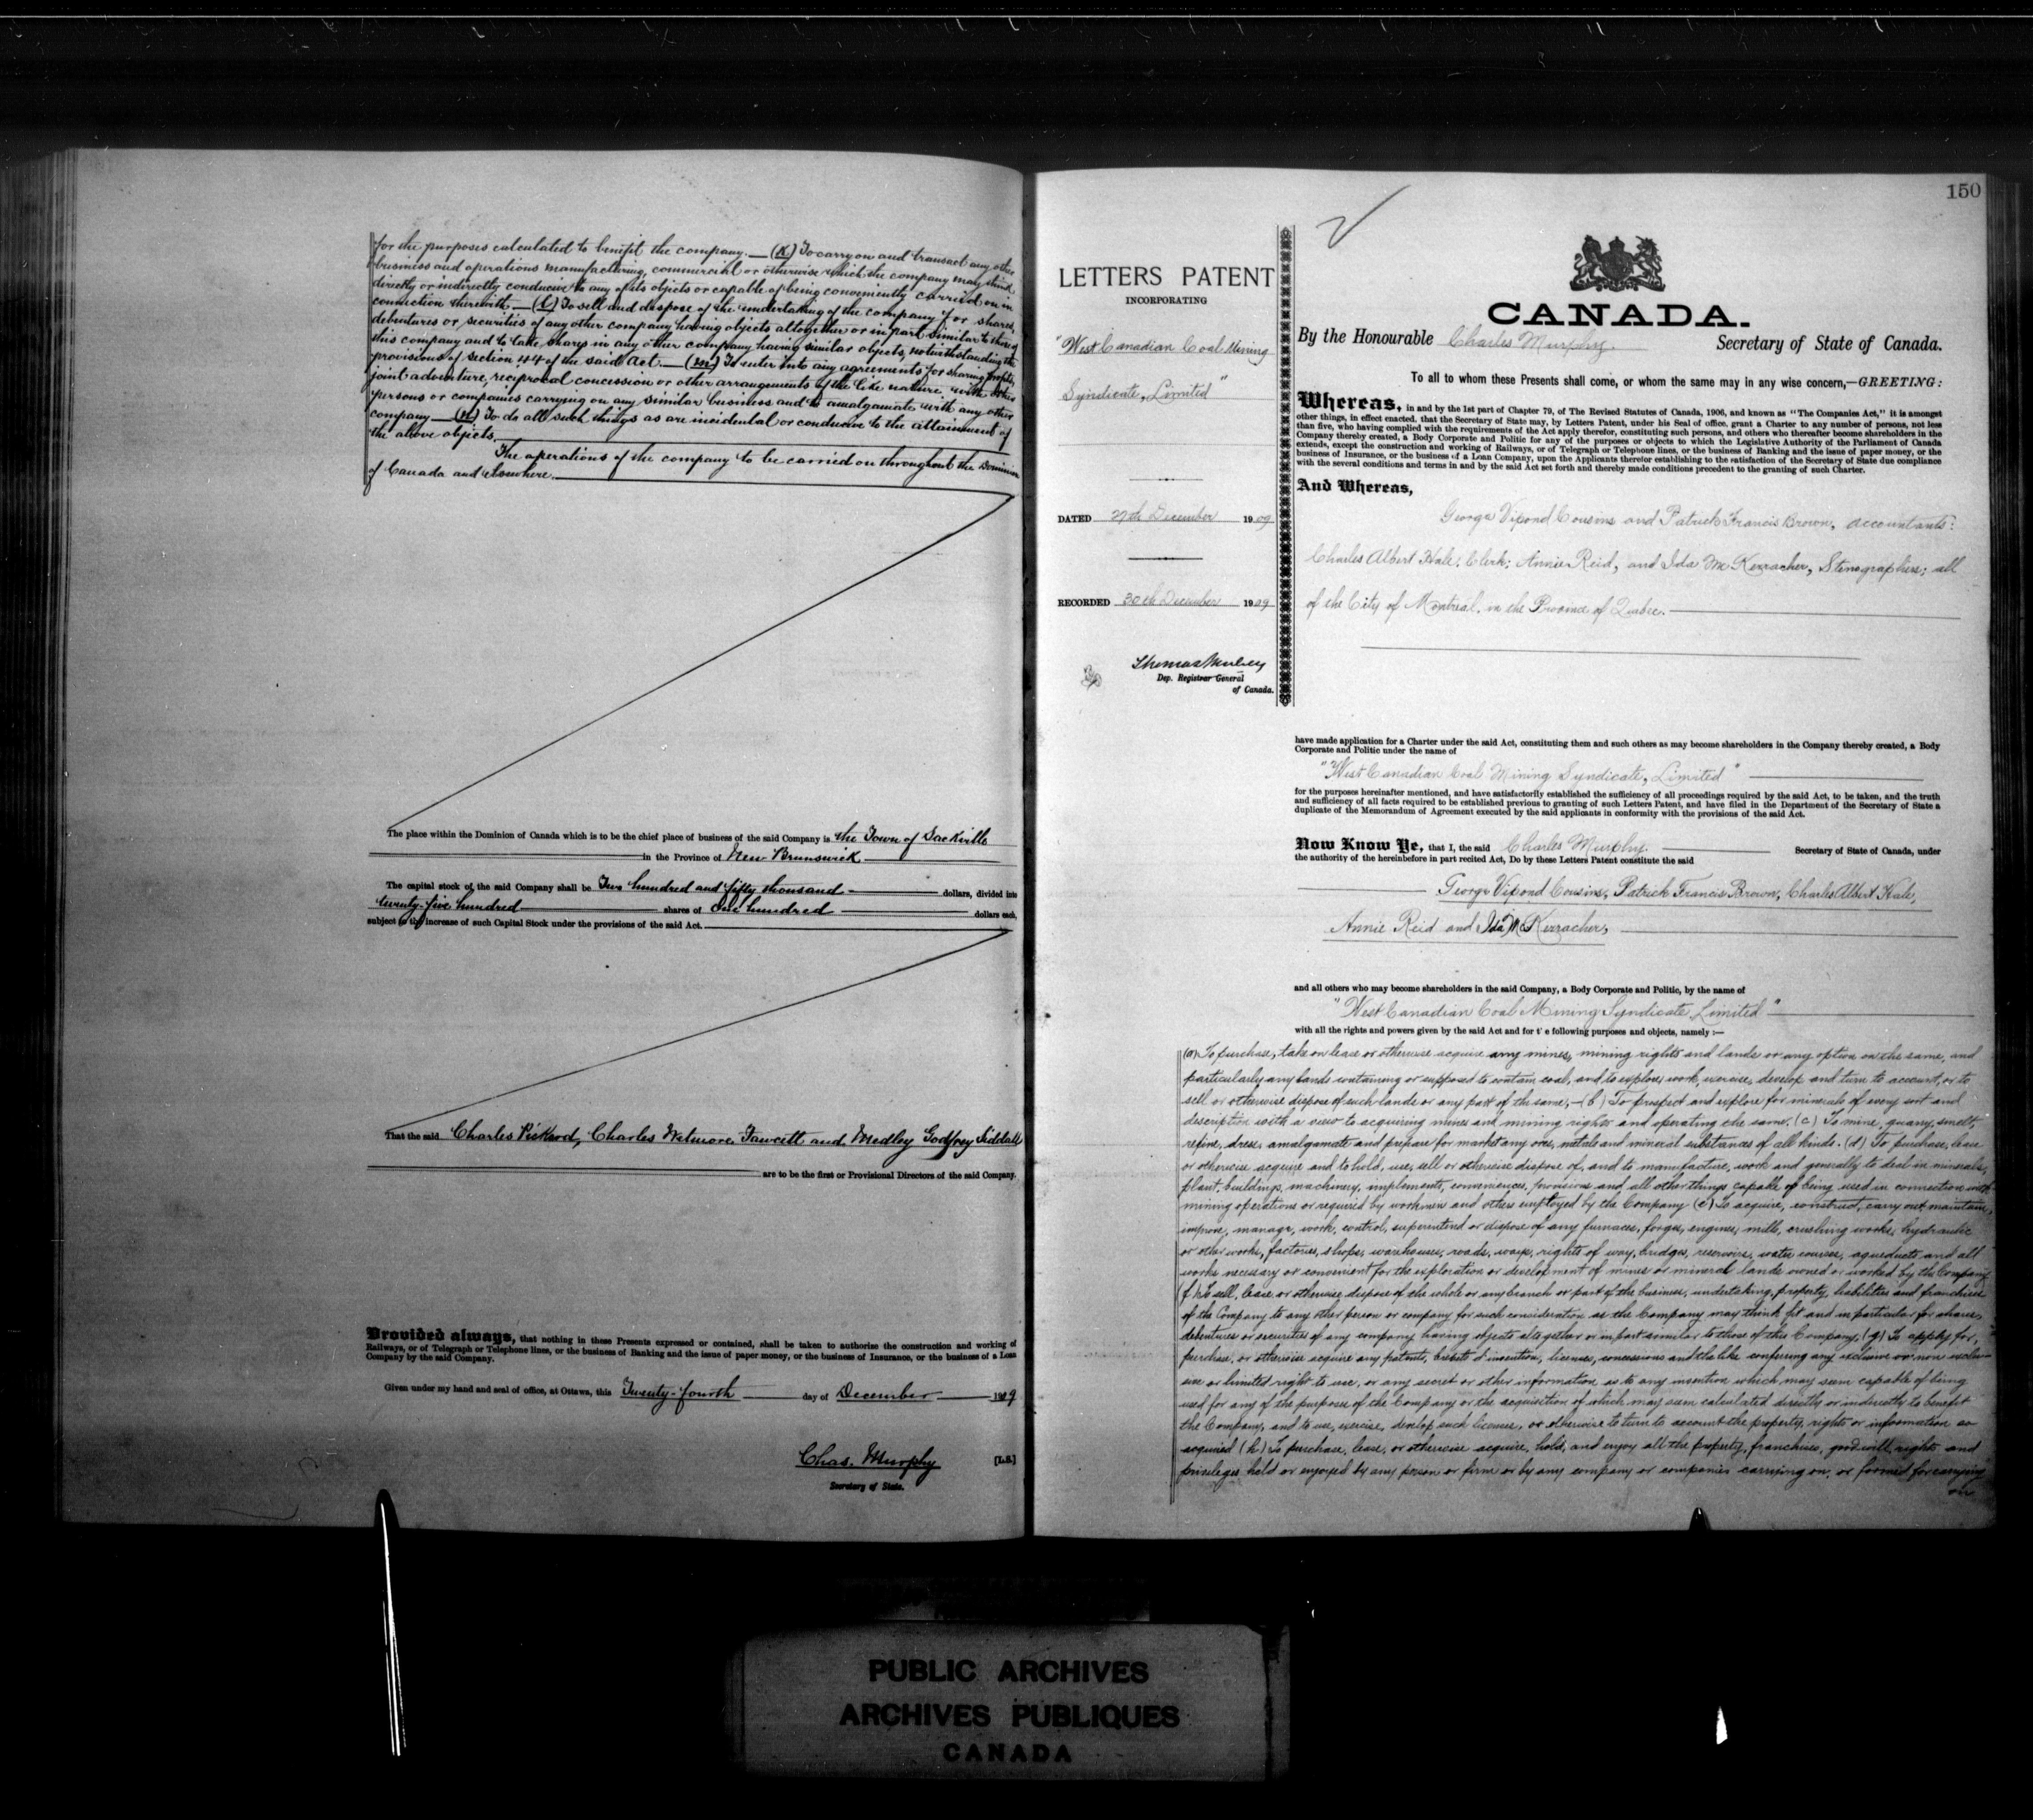 for the purposes calculated to benefit the company.— (k) To carry on and transact any other
business and operations manufacturing, commercial or otherwise which the company may think
directly or indirectly conducive to any of its objects or capable of being conveniently carried on in
connection therewith.— (l) To sell and dispose of the undertaking of the company for shares,
debentures or securities of any other company having objects altogether or in part similar to those of
this company and to take shares in any other company having similar objects, notwithstanding the
provisions of section 44 of the said Act.— (m) To enter into any agreements for sharing profits,
joint adventure, reciprocal concession or other arrangements of the like nature with other
persons or companies carrying on any similar business and to amalgamate with any other
company — (n) To do all such things as are incidental or conducive to the attainment of
the above objects.
The operations of the company to be carried on throughout the Dominion
of Canada and elsewhere.
The place within the Dominion of Canada which is to be the chief place of business of the said Company is the Town of Sackville
in the Province of New Brunswick
The capital stock of the said Company shall be Two hundred and fifty thousand dollars, divided into
twenty-five hundred shares of One hundred dollars each,
subject to the increase of such Capital Stock under the provisions of the said Act.
That the said Charles Pickard, Charles Wetmore Fawcett and Medley Godfrey Siddall
are to be the first or Provisional Directors of the said Company.
Provided always, that nothing in these Presents expressed or contained, shall be taken to authorize the construction and working of
Railways, or of Telegraph or Telephone lines, or the business of Banking and the issue of paper money, or the business of Insurance, or the business of a Loan
Company by the said Company.
Given under my hand and seal of office, at Ottawa, this Twenty-fourth day of December 1909
Chas. Murphy [L.S.]
Secretary of State.
150
LETTERS PATENT
INCORPORATING
"West Canadian Coal Mining
Syndicate, Limited"
DATED 27th December 1909
RECORDED 30th December 1909
Thomas Mulvey
Dep. Registrar General
of Canada.
CANADA.
By the Honourable Charles Murphy. Secretary of State of Canada.
To all to whom these Presents shall come, or whom the same may in any wise concern,—GREETING:
Whereas, in and by the 1st part of Chapter 79, of The Revised Statutes of Canada, 1906, and known as "The Companies Act," it is amongst
other things, in effect enacted, that the Secretary of State may, by Letters Patent, under his Seal of office, grant a Charter to any number of persons, not less
than five, who having complied with the requirements of the Act apply therefor, constituting such persons, and others who thereafter become shareholders in the
Company thereby created, a Body Corporate and Politic for any of the purposes or objects to which the Legislative Authority of the Parliament of Canada
extends, except the construction and working of Railways, or of Telegraph or Telephone lines, or the business of Banking and the issue of paper money, or the
business of Insurance, or the business of a Loan Company, upon the Applicants therefor establishing to the satisfaction of the Secretary of State due compliance
with the several conditions and terms in and by the said Act set forth and thereby made conditions precedent to the granting of such Charter.
And Whereas,
George Vipond Cousins and Patrick Francis Brown, accountants:
Charles Albert Hale, Clerk; Annie Reid, and Ida McKerracher, Stenographers; all
of the City of Montreal, in the Province of Quebec.
have made application for a Charter under the said Act, constituting them and such others as may become shareholders in the Company thereby created, a Body
Corporate and Politic under the name of
"West Canadian Coal Mining Syndicate, Limited"
for the purposes hereinafter mentioned, and have satisfactorily established the sufficiency of all proceedings required by the said Act, to be taken, and the truth
and sufficiency of all facts required to be established previous to granting of such Letters Patent, and have filed in the Department of the Secretary of State a
duplicate of the Memorandum of Agreement executed by the said applicants in conformity with the provisions of the said Act.
Now Know Ye, that I, the said Charles Murphy. Secretary of State of Canada, under
the authority of the hereinbefore in part recited Act, Do by these Letters Patent constitute the said
George Vipond Cousins, Patrick Francis Brown, Charles Albert Hale,
Annie Reid and Ida McKerracher,
and all others who may become shareholders in the said Company, a Body Corporate and Politic, by the name of
"West Canadian Coal Mining Syndicate, Limited"
with all the rights and powers given by the said Act and for t e following purposes and objects, namely :—
(a) To purchase, take on lease or otherwise acquire any mines, mining rights and lands or any option on the same, and
particularly any lands containing or supposed to contain coal, and to explore, work, exercise, develop and turn to account, or to
sell or otherwise dispose of such lands or any part of the same,—(b) To prospect and explore for minerals of every sort and
description with a view to acquiring mines and mining rights and operating the same. (c) To mine, quarry, smelt,
refine, dress, amalgamate and prepare for market any ores, metals and mineral substances of all kinds. (d) To purchase, lease
or otherwise acquire and to hold, use, sell or otherwise dispose of, and to manufacture, work and generally to deal in minerals,
plant, buildings, machinery, implements, conveniences, provisions and all other things capable of being used in connection with
mining operations or required by workmen and others employed by the Company (e) To acquire, construct, carry out, maintain,
improve, manage, work, control, superintend or dispose of any furnaces, forges, engines, mills, crushing works, hydraulic
or other works, factories, shops, warehouses, roads, ways, rights of way, bridges, reservoirs, water courses, aqueducts and all
works necessary or convenient for the exploration or development of mines or mineral lands owned or worked by the Company
(f) To sell, lease or otherwise dispose of the whole or any branch or part of the business, undertaking, property, liabilities and franchises
of the Company to any other person or company for such consideration as the Company may think fit and in particular for shares,
debentures or securities of any company having objects altogether or in part similar to those of this Company, (g) To apply for,
purchase, or otherwise acquire any patents, brevets d'invention, licenses, concessions and the like conferring any exclusive or non exclu-
sive or limited right to use, or any secret or other information as to any invention which may seem capable of being
used for any of the purposes of the Company or the acquisition of which may seem calculated directly or indirectly to benefit
the Company, and to use, exercise, develop such licenses, or otherwise to turn to account the property, rights or information so
acquired (h) To purchase, lease, or otherwise acquire, hold, and enjoy all the property, franchises, goodwill, rights and
privileges held or enjoyed by any person or firm or by any company or companies carrying on, or formed for carrying
on
PUBLIC ARCHIVES
ARCHIVES PUBLIQUES
CANADA